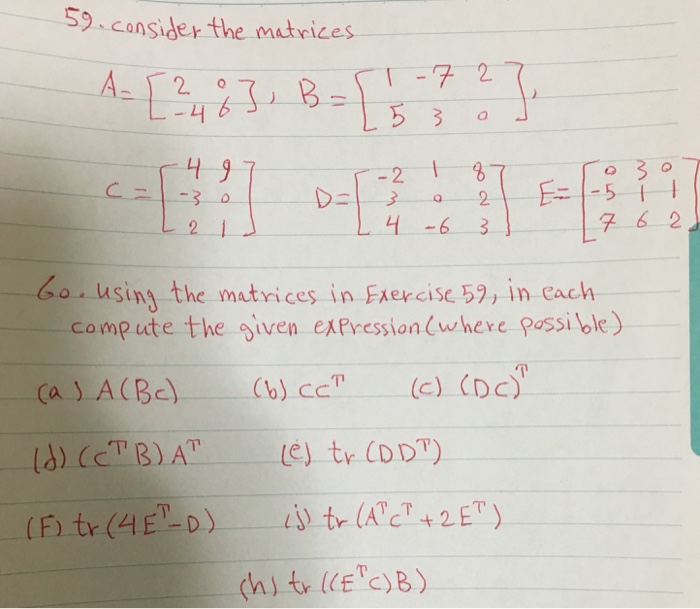 59. consider the matrices
A = [ 2 0 ; -4 6 ], B = [ 1 -7 2 ; 5 3 0 ],
C = [ 4 9 ; -3 0 ; 2 1 ] D = [ -2 1 8 ; 3 0 2 ; 4 -6 3 ] E = [ 0 3 0 ; -5 1 1 ; 7 6 2 ]
60. using the matrices in Exercise 59, in each
compute the given expression (where possible)
(a) A(BC) (b) CCᵀ (c) (DC)ᵀ
(d) (CᵀB)Aᵀ (e) tr (DDᵀ)
(F) tr (4Eᵀ-D) (j) tr (AᵀCᵀ + 2Eᵀ)
(h) tr ((EᵀC)B)